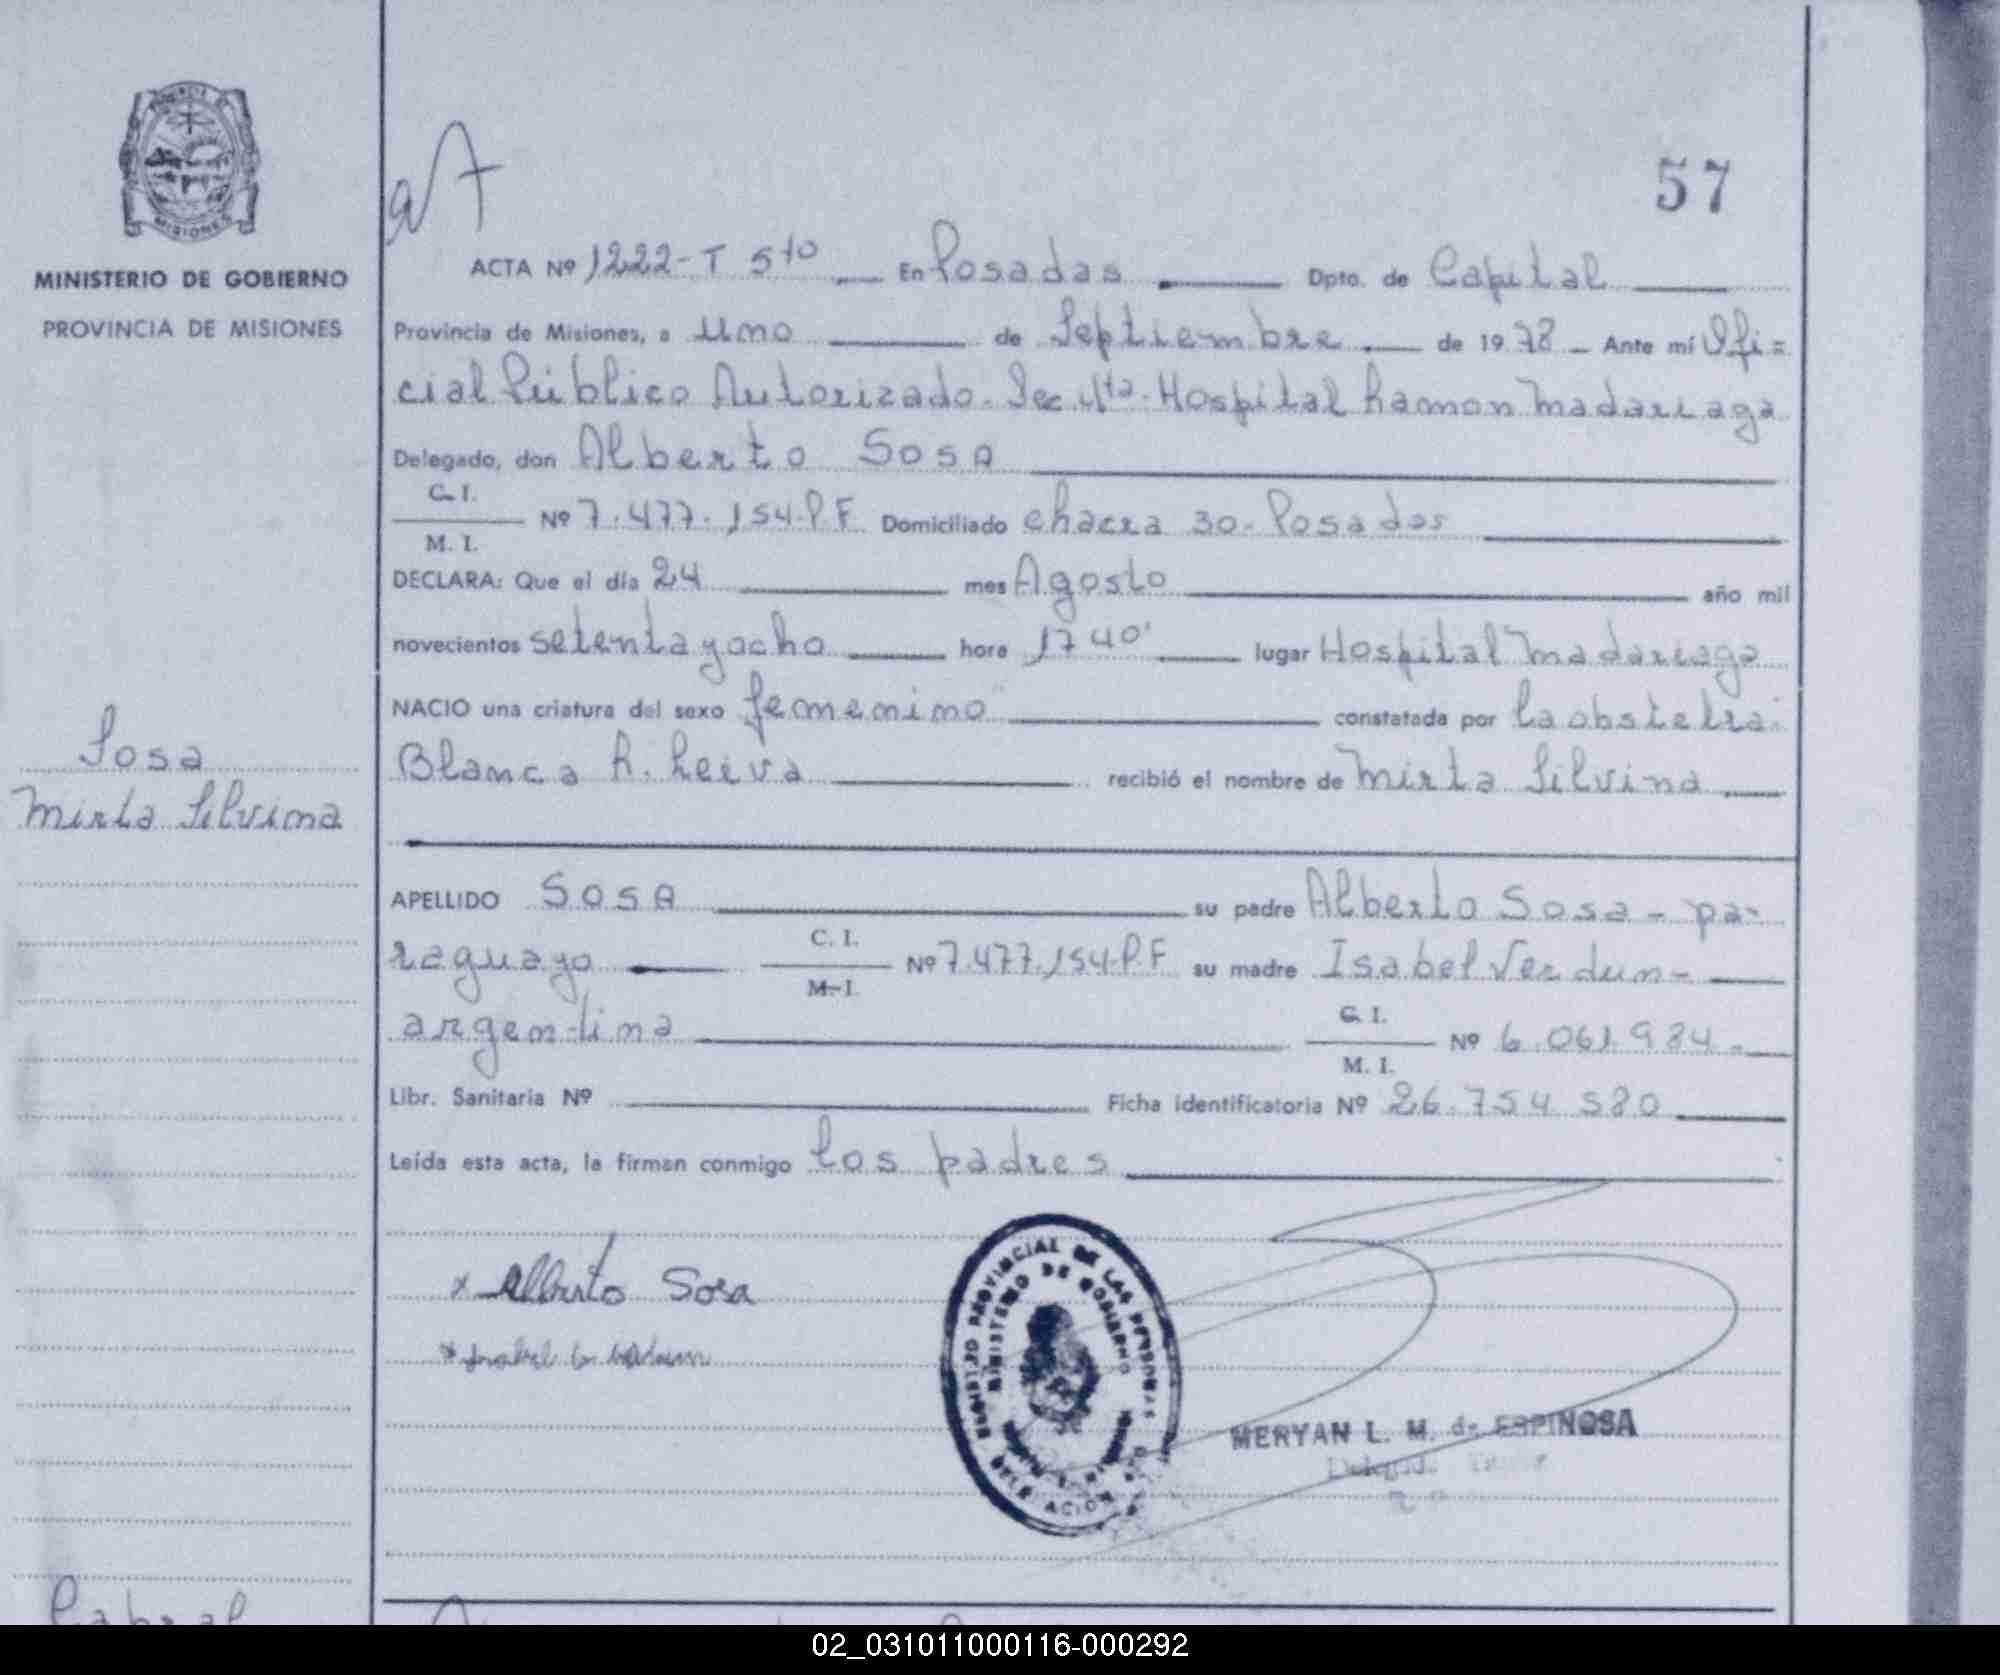 57
aT
ACTA Nº 1222-T 5to En Posadas Dpto. de Capital
MINISTERIO DE GOBIERNO
PROVINCIA DE MISIONES
Provincia de Misiones, a uno de Septiembre de 1978 Ante mí Ofi=
cial Público Autorizado. Sec. 4ta. Hospital Ramon Madariaga
Delegado, don Alberto Sosa
C. I.
M. I.
Nº 7.477.154 P.F. Domiciliado chacra 30- Posadas
DECLARA: Que el día 24 mes Agosto año mil
novecientos setenta y ocho hora 17 40' lugar Hospital Madariaga
NACIO una criatura del sexo femenino constatada por la obstetra:
Sosa
Mirta Silvina
Blanca R. Leiva recibió el nombre de Mirta Silvina
APELLIDO Sosa su padre Alberto Sosa - pa-
raguayo C. I. M. I. Nº 7.477.154 P.F su madre Isabel Verdun-
argentina C. I. M. I. Nº 6.061.984.-
Libr. Sanitaria Nº Ficha identificatoria Nº 26.754 580
Leída esta acta, la firman conmigo los padres
x Alberto Sosa
REGISTRO PROVINCIAL DE LAS PERSONAS
MINISTERIO DE GOBIERNO
DELEGACION
MERYAN L. M. de ESPINOSA
Cabral
02_031011000116-000292